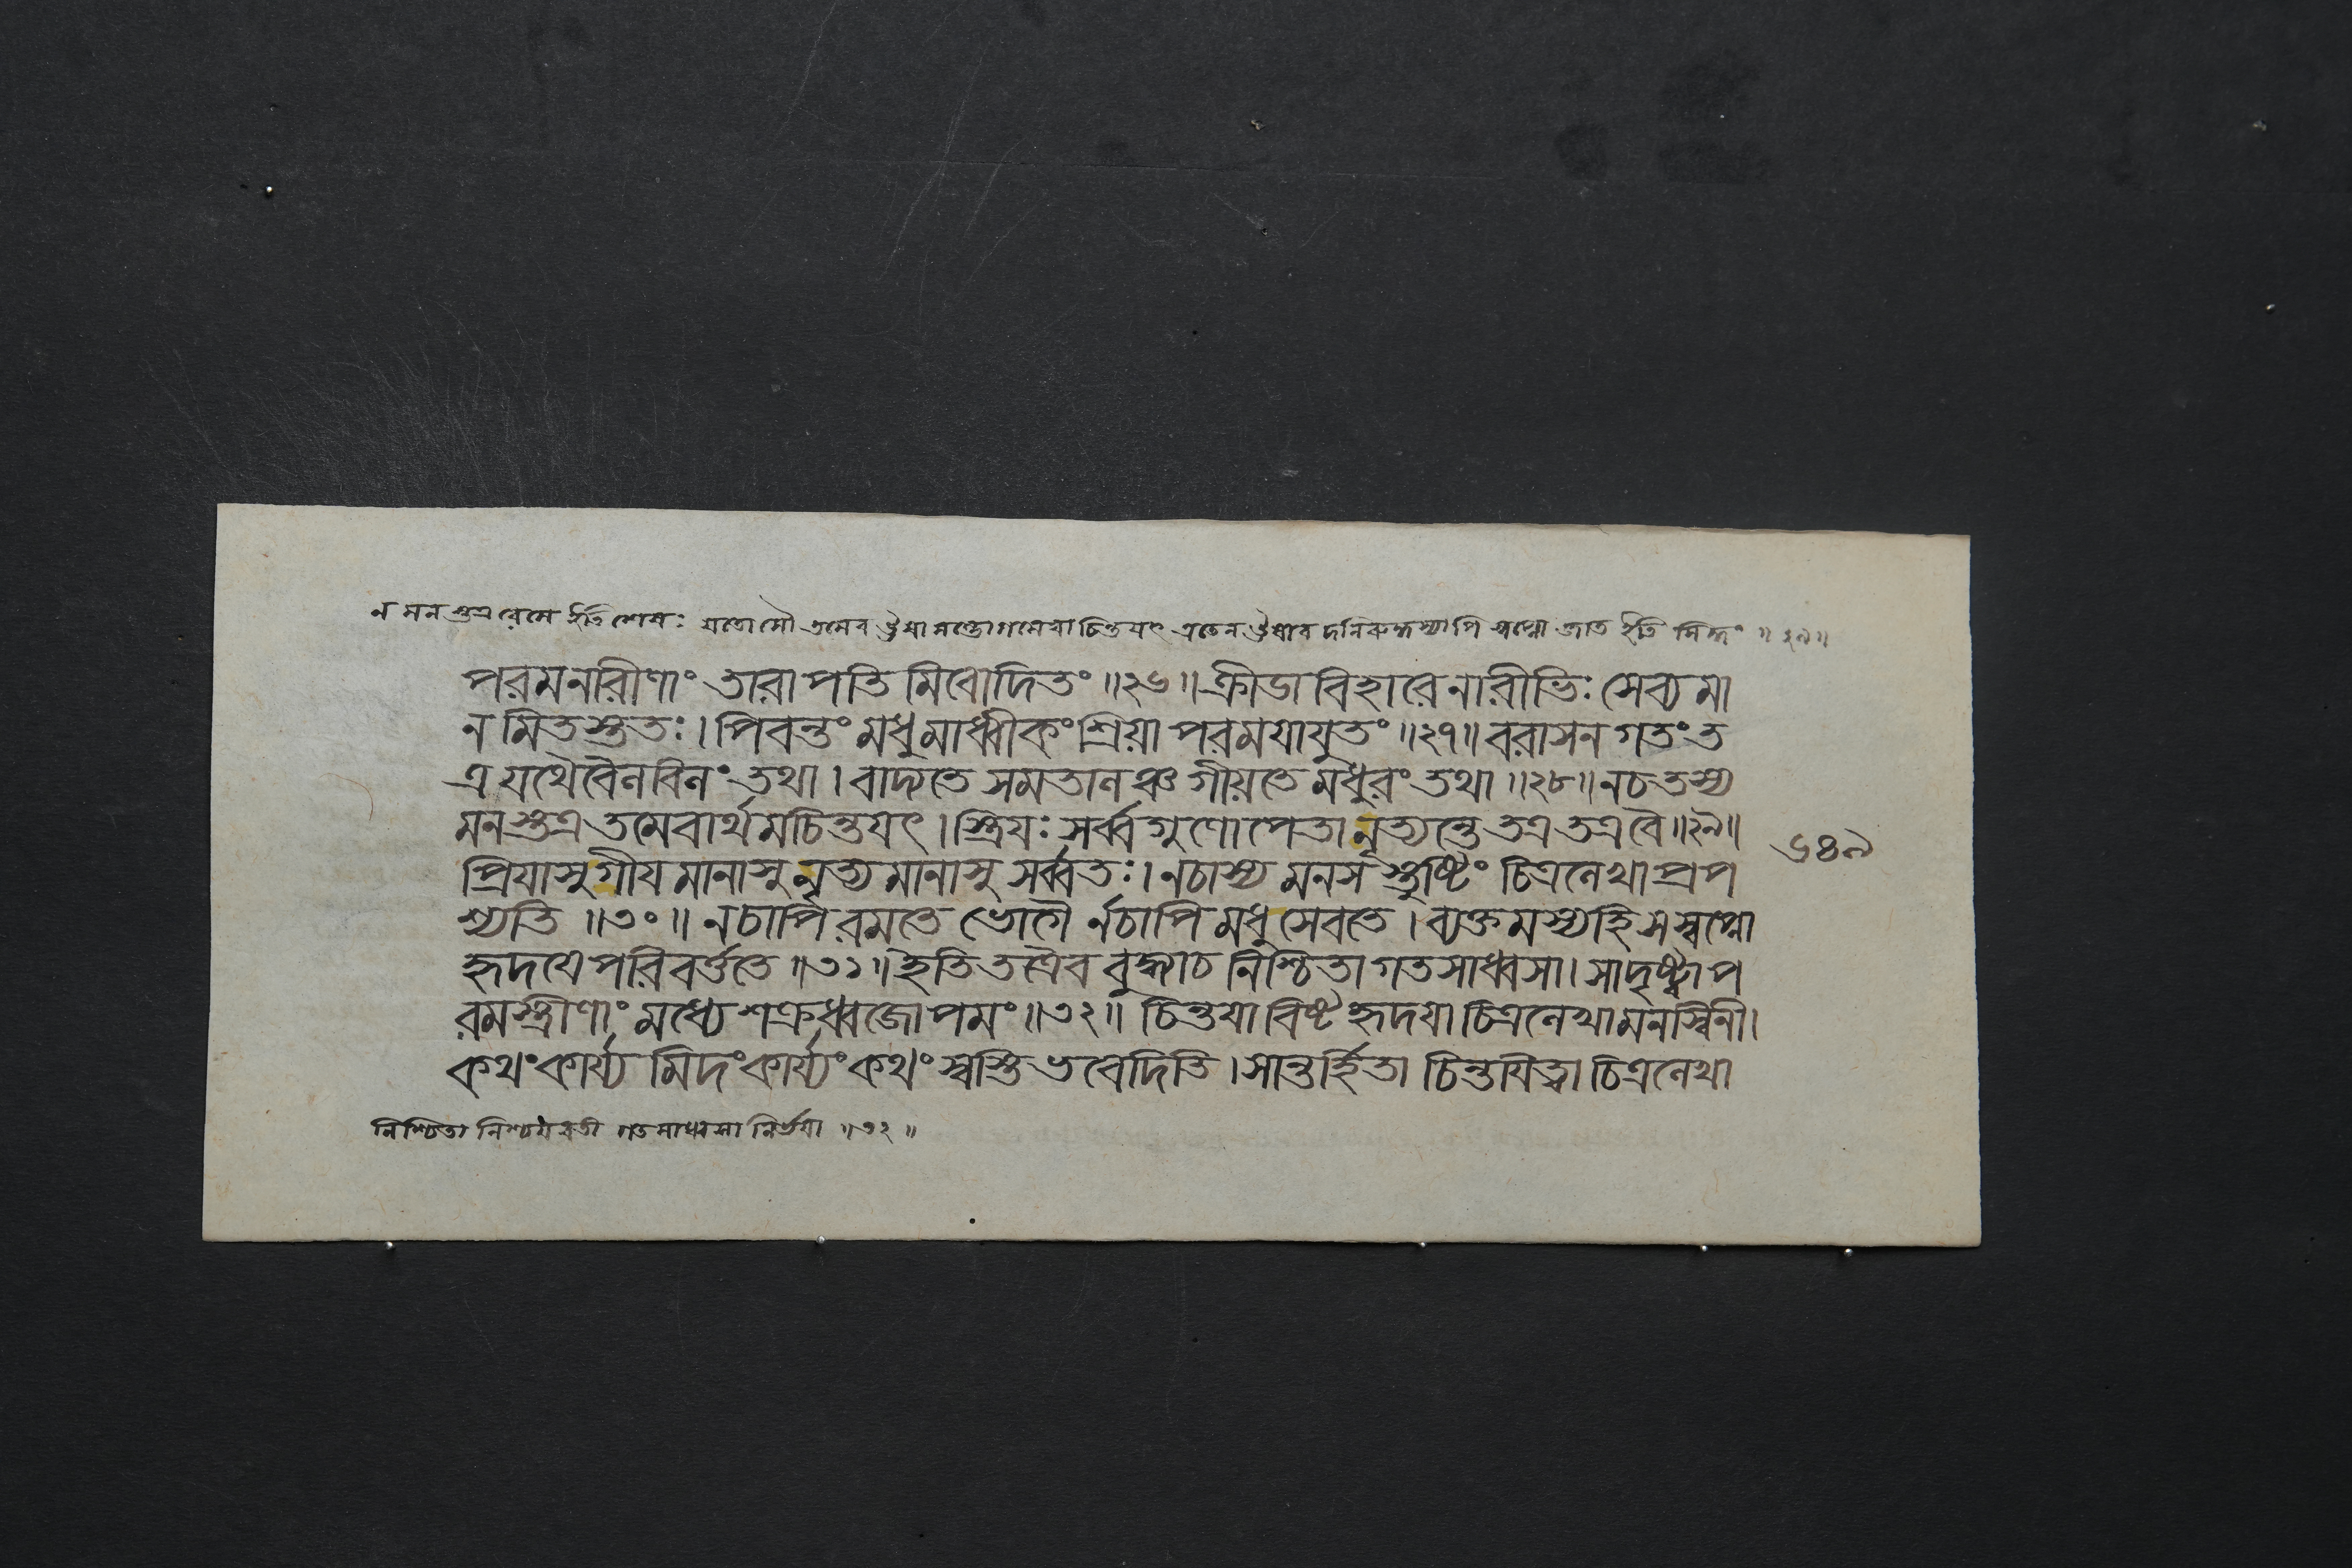 ন মনস্তত্র রেমে ইতি শেষঃ যতোসৌ তমেব ঊষাসম্ভোগমেবাচিন্তযৎ এতেন ঊষাবদনিরুদ্ধস্যাপি স্বপ্নো জাত ইতি সিদ্ধং ॥২৯॥
পরমনারীণাং তারাপতিমিবোদিতং ॥২৬॥ ক্রীডাবিহারে নারীভিঃ সেব্যমা
নমিতস্ততঃ। পিবন্তং মধুমাধ্বীকং শ্রিয়া পরমযাযুতং ॥২৭॥ বরাসনগতং ত
ত্র যথৈবৈলবিলং তথা। বাদ্যতে সমতালঞ্চ গীয়তে মধুরং তথা ॥২৮॥ নচ তস্য
মনস্তত্র তমেবার্থমচিন্তযৎ। স্ত্রিযঃ সর্ব্বগুণোপেতা নৃত্যন্তে তত্র তত্রবৈ ॥২৯॥
প্রিযাসু গীযমানাসু নৃত্যমানাসু সর্ব্বতঃ। নচাস্য মনসস্তুষ্টিং চিত্রলেখা প্রপ
শ্যতি ॥৩০॥ নচাপি রমতে ভোগৈ র্নচাপি মধু সেবতে। ব্যক্তমস্যহি স স্বপ্নো
হৃদযে পরিবর্ত্ততে ॥৩১॥ ইতি তত্রৈব বুদ্ধ্যাচ নিশ্চিতা গতসাধ্বসা। সা দৃষ্ট্বা প
রমস্ত্রীণাং মধ্যে শক্রধ্বজোপমং ॥৩২॥ চিন্তযাবিষ্টহৃদযা চিত্রলেখা মনস্বিনী।
কথংকার্য্যমিদংকার্য্যং কথং স্বস্তি ভবেদিতি। সান্তর্হিতা চিন্তযিত্বা চিত্রলেখা
৬৪৯
নিশ্চিতা নিশ্চযবতী গতসাধ্বসা নির্ভযা ॥৩২॥